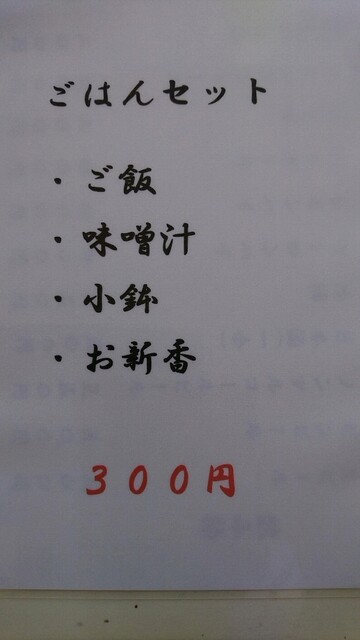 ごはんセット
・ご飯
・味噌汁
・小鉢
・お新香
３００円